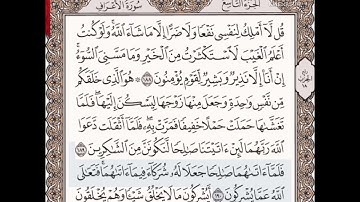 الجزء التاسع سورة الأعراف
قُل لَّا أَمْلِكُ لِنَفْسِي نَفْعًا وَلَا ضَرًّا إِلَّا مَا شَاءَ اللَّهُ وَلَوْ كُنتُ
أَعْلَمُ الْغَيْبَ لَاسْتَكْثَرْتُ مِنَ الْخَيْرِ وَمَا مَسَّنِيَ السُّوءُ
إِنْ أَنَا إِلَّا نَذِيرٌ وَبَشِيرٌ لِّقَوْمٍ يُؤْمِنُونَ ١٨٨ هُوَ الَّذِي خَلَقَكُم
مِّن نَّفْسٍ وَاحِدَةٍ وَجَعَلَ مِنْهَا زَوْجَهَا لِيَسْكُنَ إِلَيْهَا فَلَمَّا
تَغَشَّاهَا حَمَلَتْ حَمْلًا خَفِيفًا فَمَرَّتْ بِهِ فَلَمَّا أَثْقَلَت دَّعَوَا
اللَّهَ رَبَّهُمَا لَئِنْ آتَيْتَنَا صَالِحًا لَّنَكُونَنَّ مِنَ الشَّاكِرِينَ ١٨٩
فَلَمَّا آتَاهُمَا صَالِحًا جَعَلَا لَهُ شُرَكَاءَ فِيمَا آتَاهُمَا فَتَعَالَى
اللَّهُ عَمَّا يُشْرِكُونَ ١٩٠ أَيُشْرِكُونَ مَا لَا يَخْلُقُ شَيْئًا وَهُمْ يُخْلَقُونَ